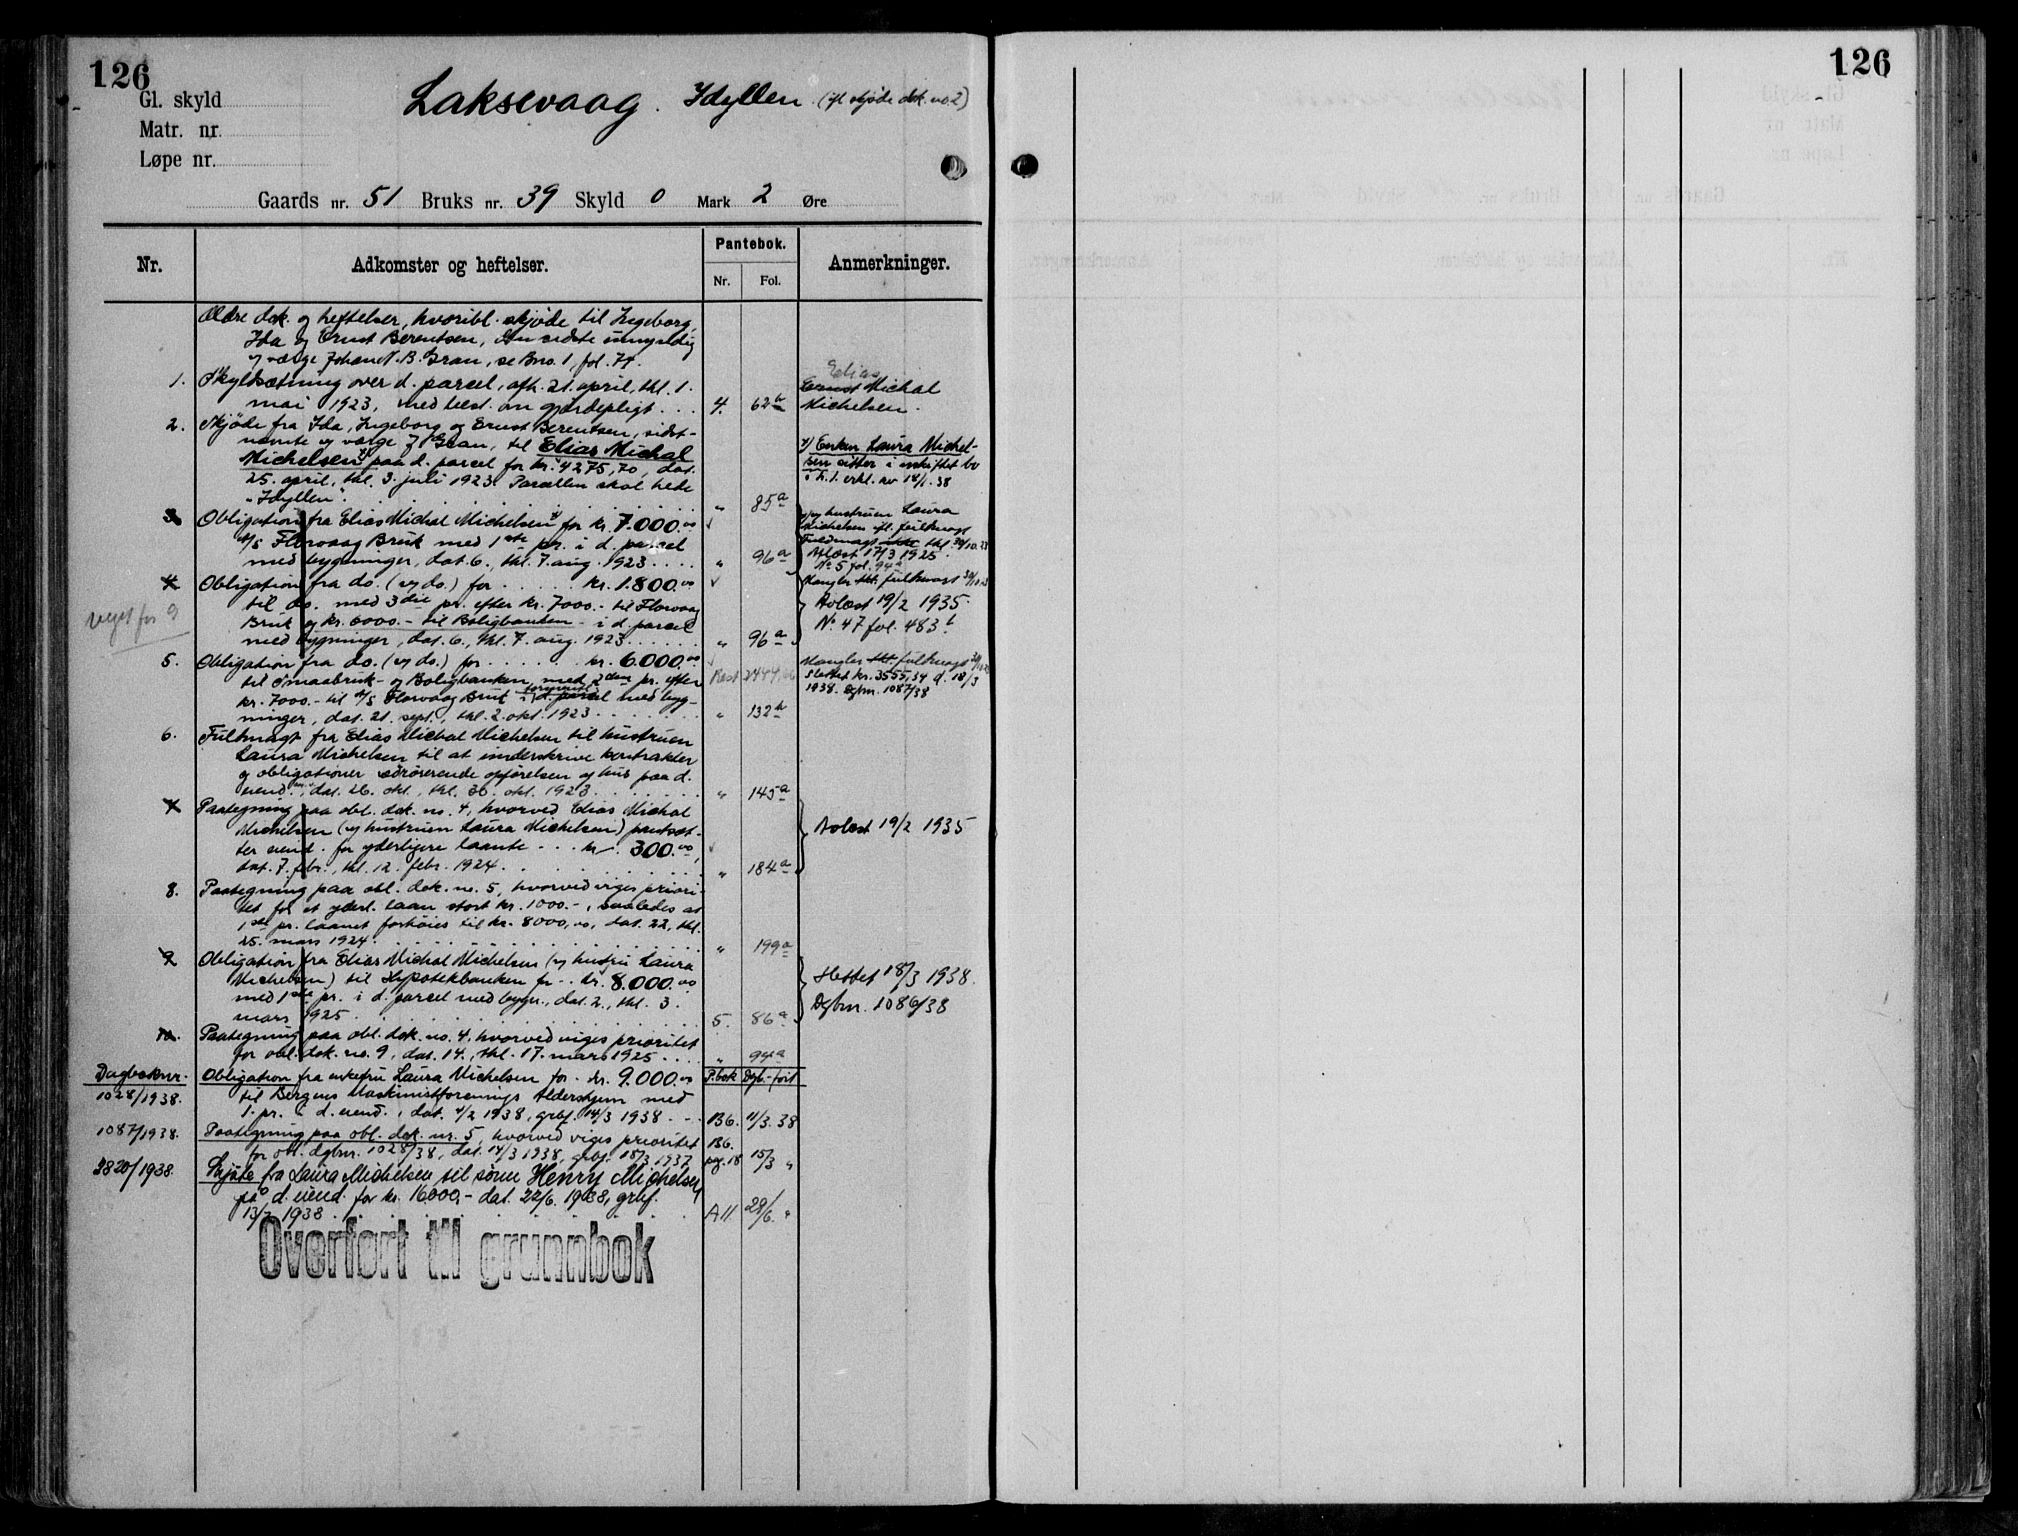 126
Gl. skyld
Matr. nr.
Løpe nr.
Laksevaag. Idyllen (ifl. skjøde dok. no. 2)
Gaards nr. 51 Bruks nr. 39 Skyld 0 Mark 2 Øre
Nr. Adkomster og heftelser. Pantebok. Nr. Fol. Anmerkninger.
Ældre dok. og heftelser, hvoribl. skjøde til Ingeborg,
Ida og Ernst Berentsen, den sidste umyndig
og værge Johan N. B. Gran, se Bno. 1, fol. 74.
1. Skyldsætning over d. parcel, afh. 21. april, thl. 1.
mai 1923, med best. om gjerdepligt . . . 4. 62 b
Elias
Ernst Michal
Michelsen.
2. Skjøde fra Ida, Ingeborg og Ernst Berentsen, sidst-
nævnte og værge J. Gran, til Elias Michal
Michelsen x) paa d. parcel for kr. 4275,70, dat.
25. april, thl. 3. juli 1923. Parcellen skal hede
"Idyllen". . . . " 85 a
x) Enken Laura Michel-
sen sitter i uskiftet bo
i h. t. erkl. av 14/1. 38
3. Obligation fra Elias Michal Michelsen x) for kr. 7.000.00
til A/S Florvaag Bruk med 1ste pr. i d. parcel
med bygninger, dat. 6., thl. 7. aug. 1923 . . . . " 96 a
x) og hustruen Laura
Michelsen ifl. fuldmagt
Fuldmagt thl. 30/10. 23
Avlæst 17/3 1925.
No 5 fol. 94 a
4. Obligation fra do. (og do.) for . . . . kr. 1.800.00
til do. med 3die pr. efter kr. 7000.- til Florvaag
Bruk og kr. 6000.- til Boligbanken - i d. parcel
med bygninger, dat. 6., thl. 7. aug. 1923 . . . . . " 96 a
Mangler fuldmagt
Avlæst 19/2 1935.
No. 47 fol. 483 b
viget for 9
5. Obligation fra do. (og do.) for . . . . . . kr. 6.000.00
til Smaabruk- og Boligbanken, med 2den pr. efter
kr. 7000.- til A/S Florvaag Bruk i d. parcel med byg-
ninger, dat. 21. sept., thl. 2. okt. 1923 . . . . . . . " 132 b
Rest 2444,66
Mangler fuldmagt
Slettet kr. 3555,34 d. 18/3
1938. Dgbnr. 1087/38
6. Fuldmagt fra Elias Michal Michelsen til hustruen
Laura Michelsen til at underskrive kontrakter
og obligationer vedrørende opførelsen af hus paa d.
eiend., dat. 26. okt., thl. 30. okt. 1923 . . . . . . . " 145 a
7. Paategning paa obl. dok. no. 4, hvorved Elias Michal
Michelsen (og hustruen Laura Michelsen) pantsæt-
ter eiend. for yderligere laante . . . kr. 300.00,
dat. 7. febr., thl. 12. febr. 1924 . . . " 184 a
Avlæst 19/2 1935
8. Paategning paa obl. dok. no. 5, hvorved viges priori-
tet for et yderl. laan stort kr. 1000.-, saaledes at
1ste pr. laanet forhøies til kr. 8000,00, dat. 22., thl.
25. mars 1924. . . . " 199 a
9. Obligation fra Elias Michal Michelsen (og hustru Laura
Michelsen) til Hypotekbanken for . . kr. 8.000.00
med 1ste pr. i d. parcel med bygn., dat. 2., thl. 3.
mars 1925 . . . 5. 86 a
Slettet 18/3 1938.
Dgbnr. 1086/38
10. Paategning paa obl. dok. no. 4, hvorved viges prioritet
for obl. dok. no. 9, dat. 14., thl. 17. mars 1925 . . . . " 94 a
Dagboknr. P.bok Dgb.-ført
1028/1938. Obligation fra enkefru Laura Michelsen for . kr. 9.000.00
til Bergens Maskinistforenings Aldershjem med
1. pr. i d. eiend., dat. 4/2 1938, grbf. 14/3 1938 . . . B6. 11/3. 38
1087/1938. Paategning paa obl. dok. nr. 5, hvorved viges prioritet
for obl. dgbnr. 1028/38, dat. 14/3 1938, grbf. 18/3 1937. B6. pag. 18 15/3 "
3820/1938. Skjøte fra Laura Michelsen til sønn Henry Michelsen
på d. eiend. for kr. 16000,- dat. 22/6. 1938, grbf.
13/7 1938 . . . A11. 29/6. "
Overført til grunnbok
126